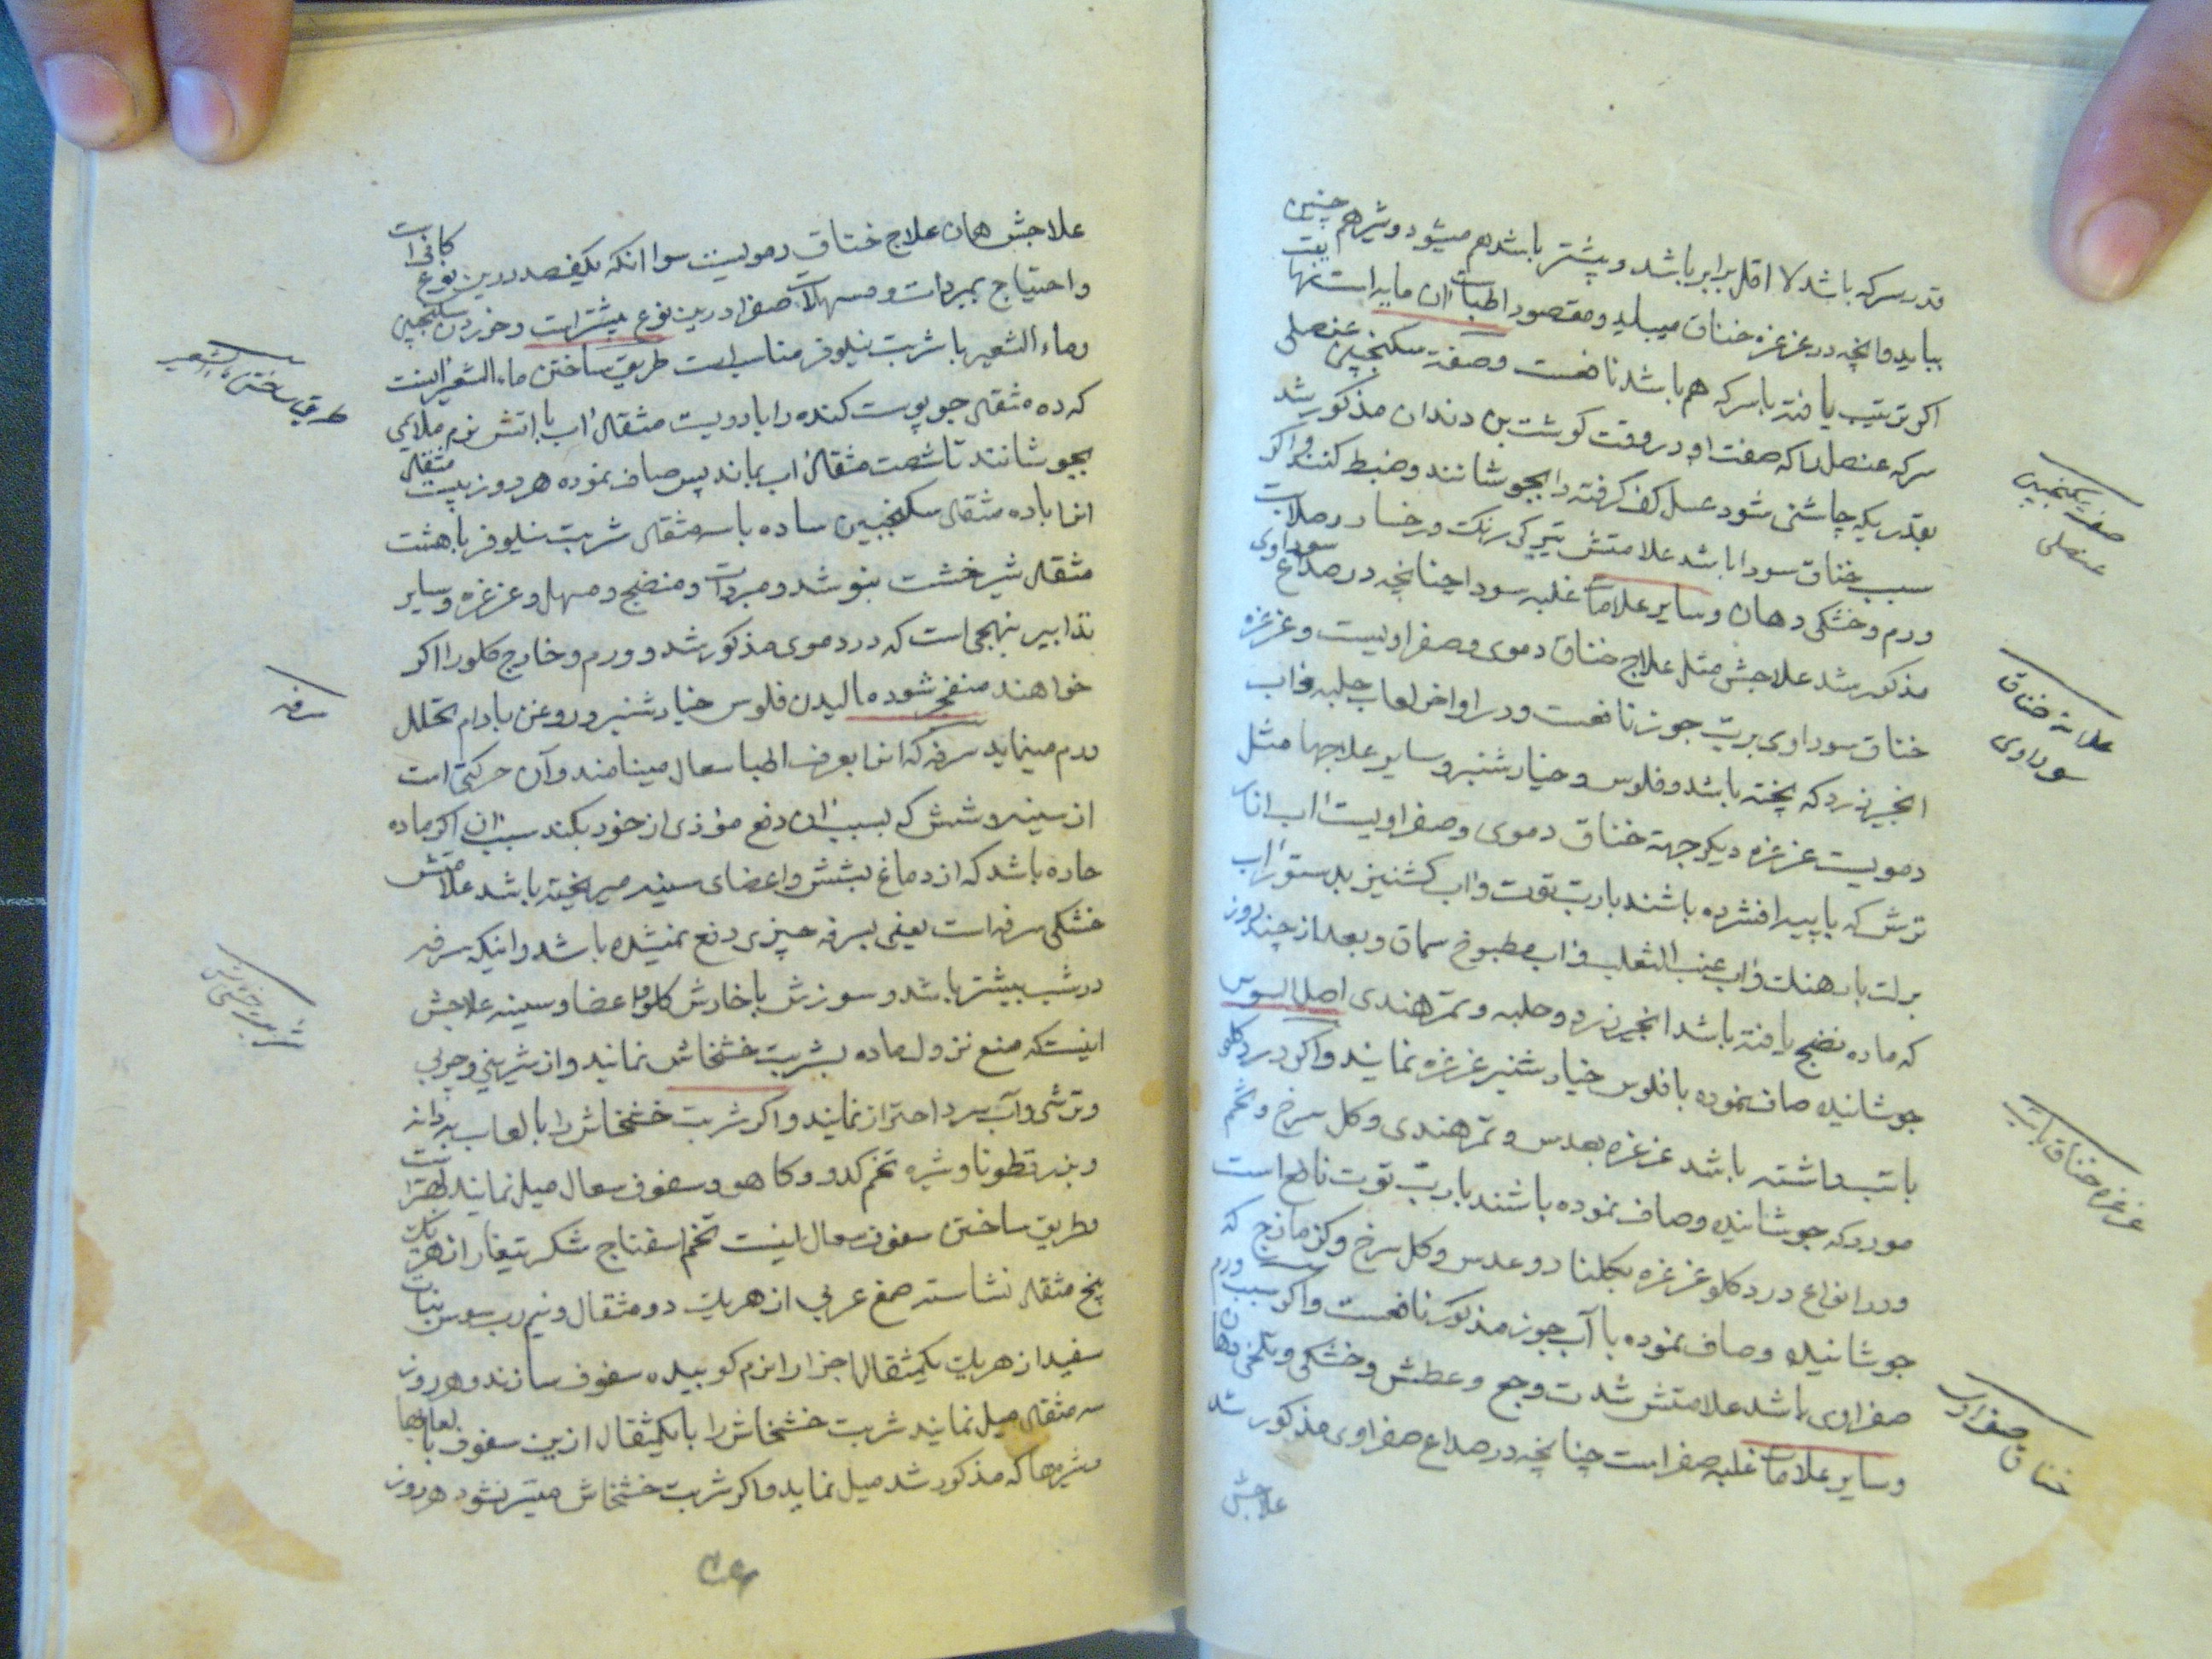 قدر سرکه باشد لا اقل برابر باشد و بیشتر باشد هم میشود و شیر هم چنین
بیاید و انچه در غرغره خناق میباید و مقصود اطبات ان مایه است تنها
اکر ترتیب یافته باسرکه هم باشد نافعست و صفة سکنجبین عنصلی
سرکه عنصل را که صفت او در وقت کوشت بن دندان مذکور شد
بقدریکه چاشنی شود عسل کف کرفته را بجوشانند و ضبط کنند و اکر
سبب خناق سودا باشد علامتش تیرکی رنک و رخسار و صلابت
ورم و خشکی دهان و سایر علامات غلبه سودا چنانچه در صداع سوداوی
مذکور شد علاجش مثل علاج خناق دموی و صفراویست و غرغره
خناق سوداوی برب جوز نافعست و در اواخر لعاب حلبه و اب
انجیر زرد که پخته باشد و فلوس و خیار شنبر و سایر علاجها مثل
دمویست غرغره دیکر جهة خناق دموی و صفراویست اب انار
ترش که با پیه افشرده باشند با رب توت و اب کشنیز بدستور اب
برک بارهنک و اب عنب الثعلب و اب مطبوخ سماق و بعد از چند روز
که ماده نضج یافته باشد انجیر زرد و حلبه و تمر هندی اصل السوس
جوشانیده صاف نموده با فلوس خیار شنبر غرغره نمایند و اکر درد کلو
با تب داشته باشد غرغره بعدس و تمر هندی و کل سرخ و تخم
مورد که جوشانیده و صاف نموده باشند با رب توت نافع است
و در انواع درد کلو غرغره بکلنار و عدس و کل سرخ و کزمازج که
جوشانیده و صاف نموده با آب جوز مذکور نافعست و اکر سبب ورم
صفراوی باشد علامتش شدت وجع و عطش و خشکی و تلخی دهان
و سایر علامات غلبه صفراست چنانچه در صداع صفراوی مذکور شد
علاجش
صفت سکنجبین
عنصلی
علامة خناق
سوداوی
غرغره خناق باتب
خناق صفراوی
علاجش همان علاج خناق دمویست سوا انکه یک فصد درین نوع کافی است
و احتیاج بمبردات و مسهلات صفرا درین نوع بیشتر است و خوردن سکنجبین
و ماء الشعیر با شربت نیلوفر مناسبست طریق ساختن ماء الشعیر اینست
که ده مثقال جو پوست کنده را با دویست مثقال اب با اتش نرم ملایمی
بجوشانند تا شصت مثقال اب بماند پس صاف نموده هر روز بیست مثقال
انرا با ده مثقال سکنجبین ساده یا سه مثقال شربت نیلوفر با هشت
مثقال شیر خشت بنوشد و مبردات و منضج و مسهل و غرغره و سایر
تدابیر بنهجی است که در دموی مذکور شد و ورم و خارج کلو را اکر
خواهند منفجر شود مالیدن فلوس خیار شنبر و روغن بادام تحلیل
ورم مینماید سرفه که انرا بعرف اطبا سعال مینامند و آن حرکتی است
از سینه و شش که بسبب ان دفع موذی از خود بکند سبب ان اکر ماده
حاره باشد که از دماغ بشش و اعضای سینه میریخته باشد علامتش
خشکی سرفه است یعنی بسرفه چیزی دفع نمیشده باشد و اینکه سرفه
در شب بیشتر باشد و سوزش با خارش کلو و اعضا و سینه علاجش
اینست که منع نزول ماده بشربت خشخاش نمایند و از شیرینی و چربی
و ترشی و آب سرد احتراز نمایند و اکر شربت خشخاش را با لعاب بهدانه
و بزرقطونا و شیره تخم کدو و کاهو و سفوف سعال میل نمایند بهتر است
و طریق ساختن سفوف سعال اینست تخم اسفناج شکر تیغار از هر یک
پنج مثقال نشاسته صمغ عربی از هر یک دو مثقال و نیم رب سوس نبات
سفید از هر یک یکمثقال اجزا را نرم کوبیده سفوف سازند و هر روز
سه مثقال میل نمایند شربت خشخاش را با یکمثقال ازین سفوف با لعابها
شیرها که مذکور شد میل نماید و اکر شربت خشخاش میسر نشود هر روز
طریق ساختن ماء الشعیر
سرفه